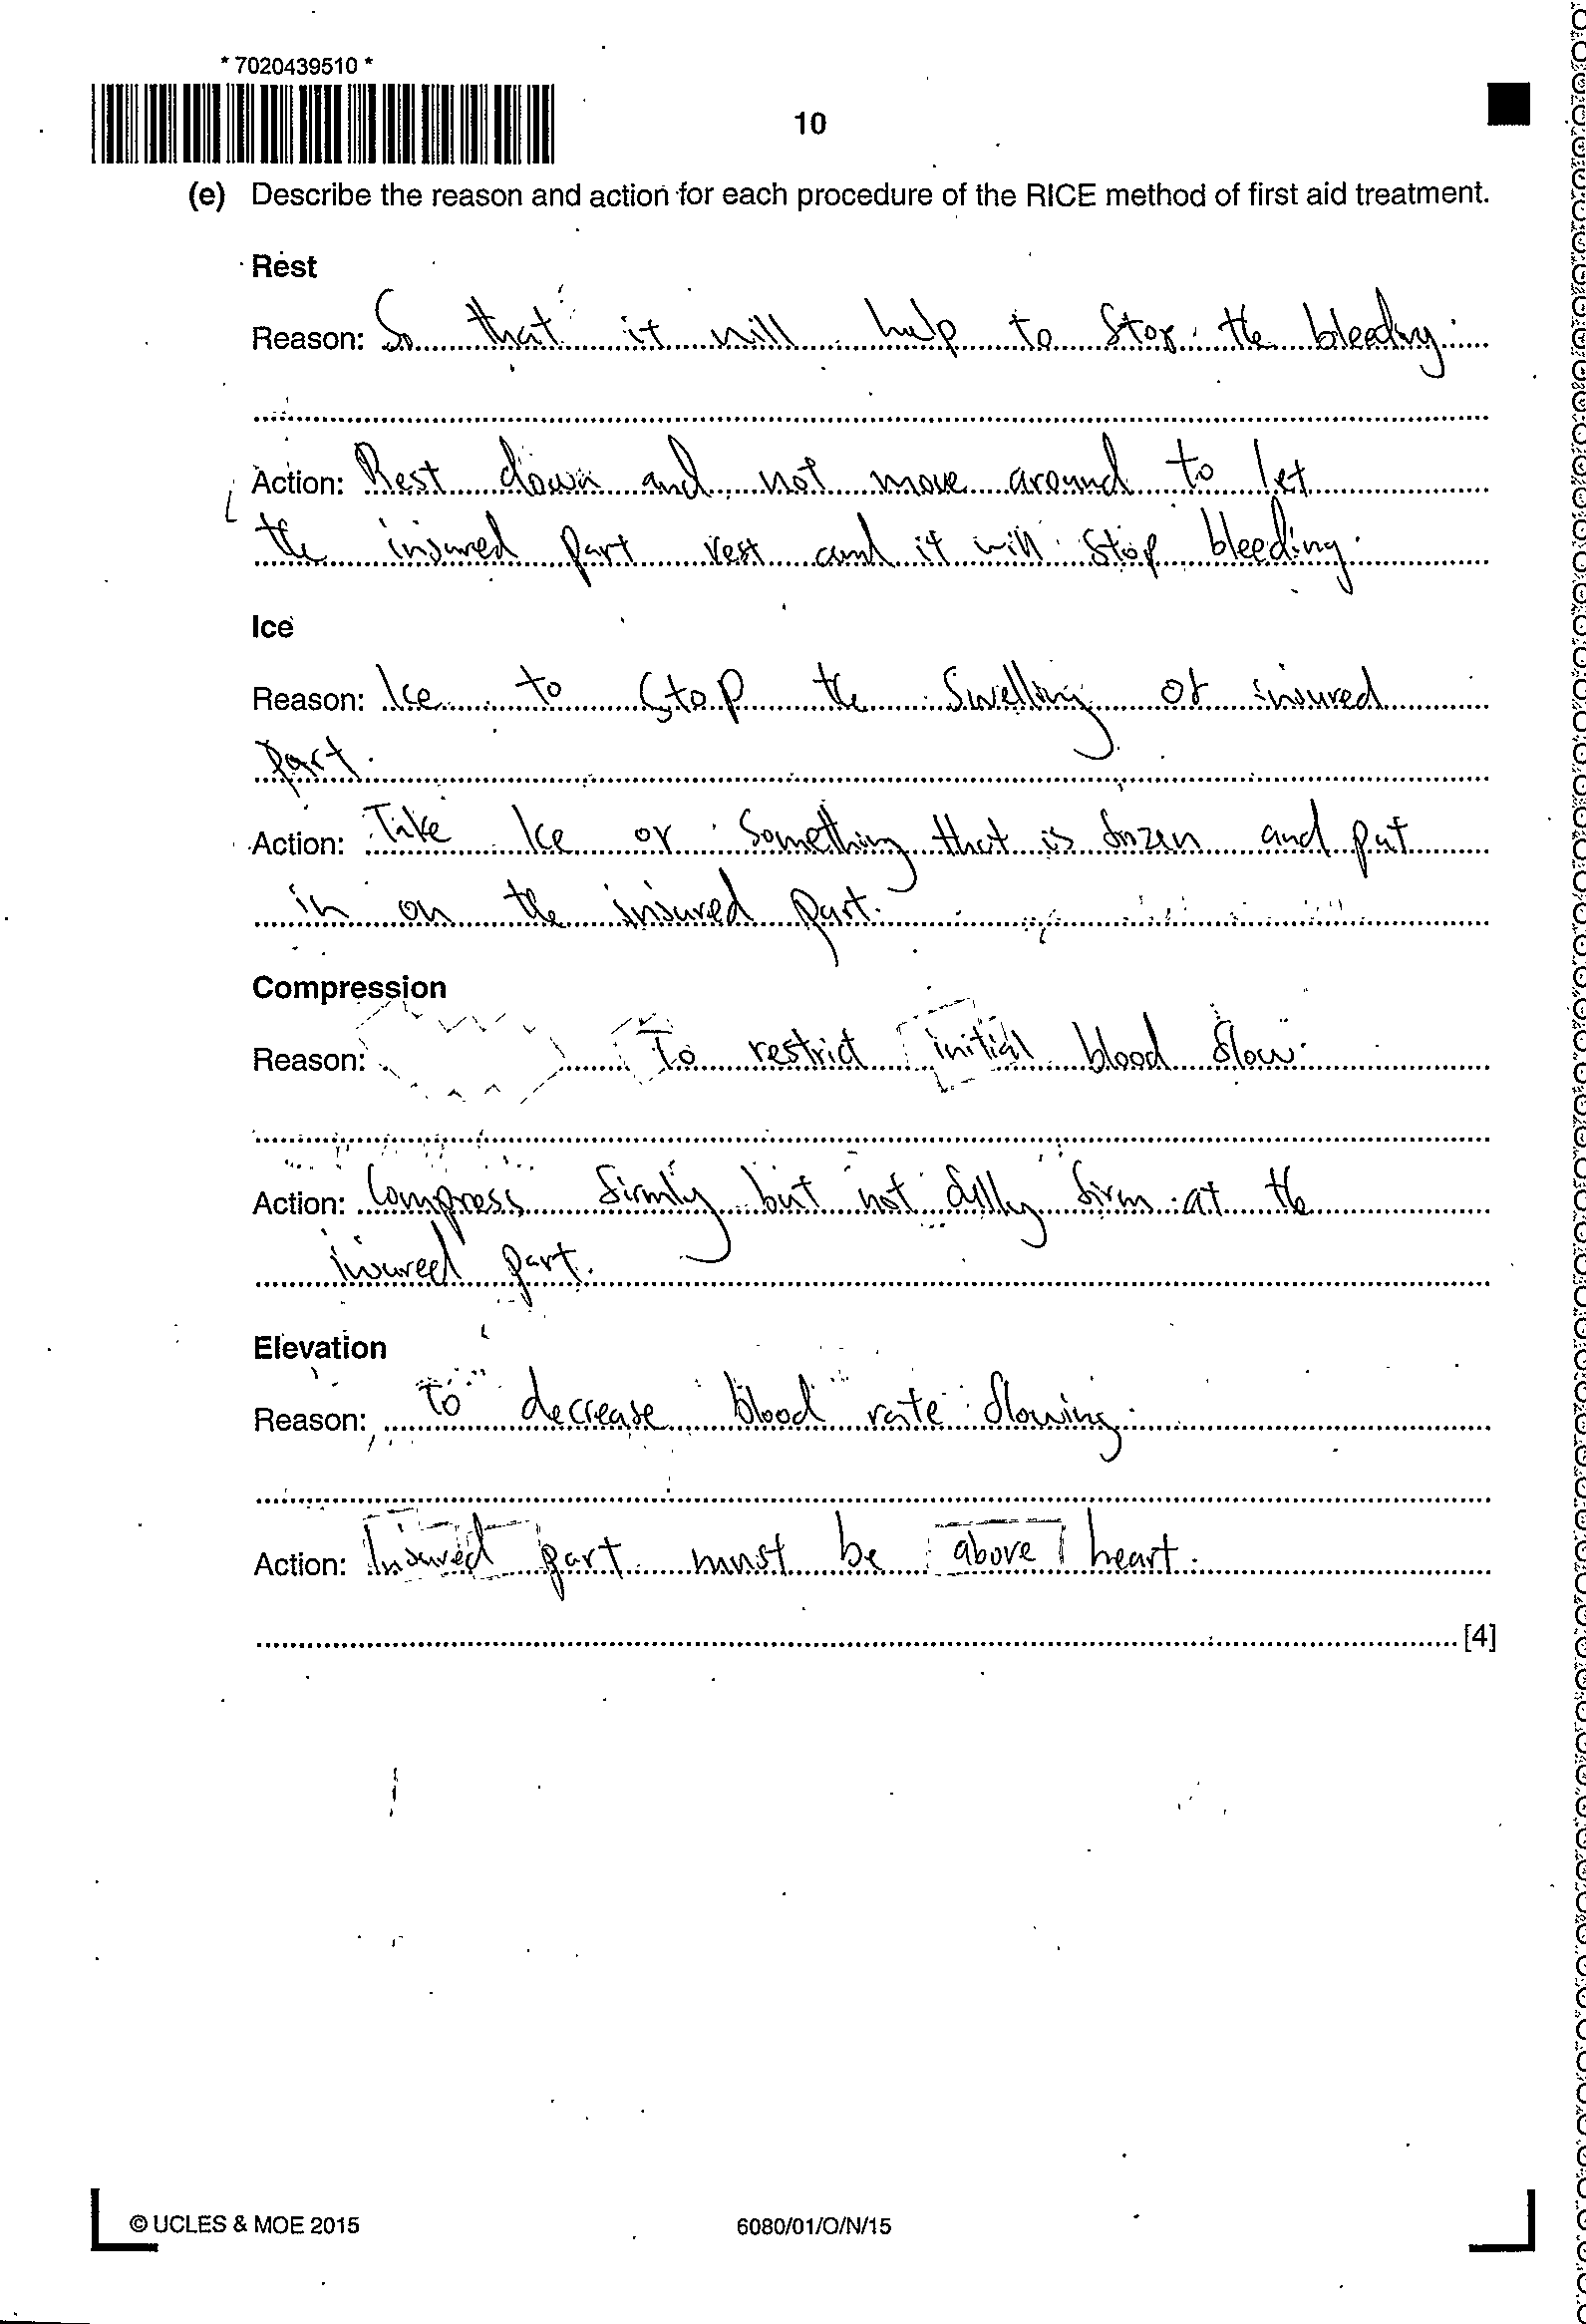 * 7020439510 *
10
(e) Describe the reason and action for each procedure of the RICE method of first aid treatment.
Rest
Reason: So that it will help to stop the bleeding.
Action: Rest down and not move around to let
the injured part rest and it will stop bleeding.
Ice
Reason: Ice to stop the swelling of injured
part.
Action: Take Ice or something that is frozen and put
in on the injured part.
Compression
Reason: To restrict initial blood flow.
Action: Compress firmly but not fully firm at the
injured part.
Elevation
Reason: To decrease blood rate flowing.
Action: Injured part must be above heart.
[4]
© UCLES & MOE 2015
6080/01/O/N/15